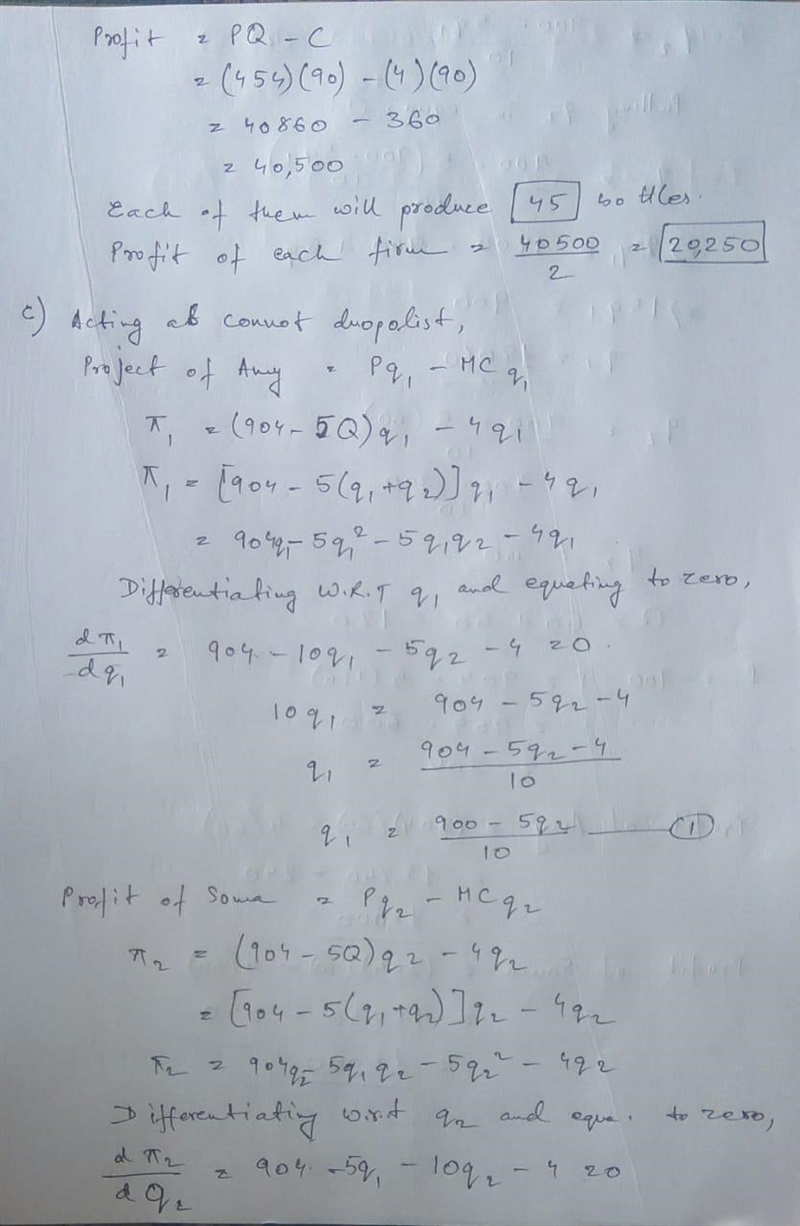 Profit = PQ - C
= (454)(90) - (4)(90)
= 40860 - 360
= 40,500
Each of them will produce 45 bottles.
Profit of each firm = 40500/2 = 20,250
c) Acting as connot duopolist,
Project of Amy = Pq₁ - MCq₁
π₁ = (904 - 5Q)q₁ - 4q₁
π₁ = [904 - 5(q₁+q₂)]q₁ - 4q₁
= 904q₁ - 5q₁² - 5q₁q₂ - 4q₁
Differentiating W.R.T q₁ and equating to zero,
dπ₁/dq₁ = 904 - 10q₁ - 5q₂ - 4 = 0.
10q₁ = 904 - 5q₂ - 4
q₁ = (904 - 5q₂ - 4)/10
q₁ = (900 - 5q₂)/10 —— (1)
Profit of Soma = Pq₂ - MCq₂
π₂ = (904 - 5Q)q₂ - 4q₂
= [904 - 5(q₁+q₂)]q₂ - 4q₂
π₂ = 904q₂ - 5q₁q₂ - 5q₂² - 4q₂
Differentiating w.r.t q₂ and equa. to zero,
dπ₂/dQ₂ = 904 - 5q₁ - 10q₂ - 4 = 0